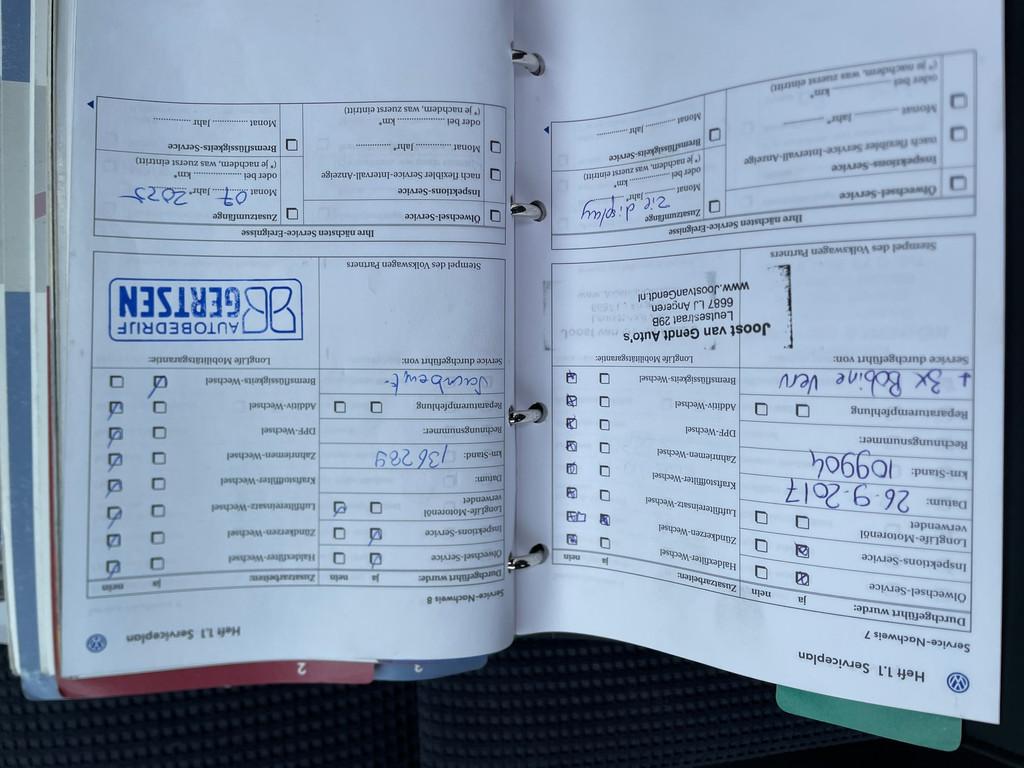 Heft 1.1 Serviceplan
Service-Nachweis 7
Durchgeführt wurde:
ja nein
Ölwechsel-Service
Inspektions-Service
LongLife-Motorenöl
verwendet
Datum: 26-9-2017
km-Stand: 109904
Rechnungsnummer:
Reparaturempfehlung
+ 3x Bobine Verv
Service durchgeführt von:
Zusatzarbeiten: ja nein
Haldexfilter-Wechsel
Zündkerzen-Wechsel
Luftfiltereinsatz-Wechsel
Kraftstofffilter-Wechsel
Zahnriemen-Wechsel
DPF-Wechsel
Additiv-Wechsel
Bremsflüssigkeits-Wechsel
LongLife Mobilitätsgarantie:
Joost van Gendt Auto's
Leutsestraat 29B
6687 LJ Angeren
www.JoostvanGendt.nl
Stempel des Volkswagen Partners
Ihre nächsten Service-Ereignisse
Ölwechsel-Service
Inspektions-Service
nach flexibler Service-Intervall-Anzeige
Monat ............ Jahr* ............
oder bei ............ km*
(* je nachdem, was zuerst eintritt)
Zusatzumfänge
Zie display
Monat ............ Jahr* ............
oder bei ............ km*
(* je nachdem, was zuerst eintritt)
Bremsflüssigkeits-Service
Monat ............ Jahr ............
Heft 1.1 Serviceplan
Service-Nachweis 8
Durchgeführt wurde: ja nein
Ölwechsel-Service
Inspektions-Service
LongLife-Motorenöl
verwendet
Datum:
km-Stand: 136289
Rechnungsnummer:
Reparaturempfehlung
Service durchgeführt von:
Zusatzarbeiten: ja nein
Haldexfilter-Wechsel
Zündkerzen-Wechsel
Luftfiltereinsatz-Wechsel
Kraftstofffilter-Wechsel
Zahnriemen-Wechsel
DPF-Wechsel
Additiv-Wechsel
Bremsflüssigkeits-Wechsel
LongLife Mobilitätsgarantie:
AUTOBEDRIJF
GERTSEN
Stempel des Volkswagen Partners
Ihre nächsten Service-Ereignisse
Ölwechsel-Service
Inspektions-Service
nach flexibler Service-Intervall-Anzeige
Monat ............ Jahr* ............
oder bei ............ km*
(* je nachdem, was zuerst eintritt)
Zusatzumfänge
Monat 07 Jahr* 2025
oder bei ............ km*
(* je nachdem, was zuerst eintritt)
Bremsflüssigkeits-Service
Monat ............ Jahr ............
2
3